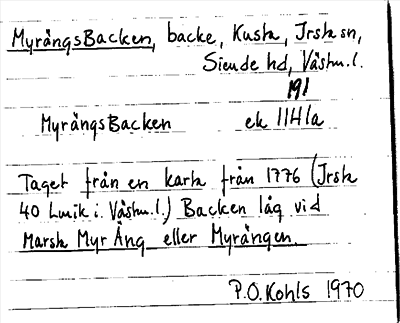 MyrängsBacken, backe, Kusta, Irsta sn,
Siende hd, Västm.l.
191
MyrängsBacken ek 11H1a
Taget från en karta från 1776 (Irsta
40 Lmik i. Västm.l.) Backen låg vid
Marsta Myr Äng eller Myrängen.
P.O.Kohls 1970